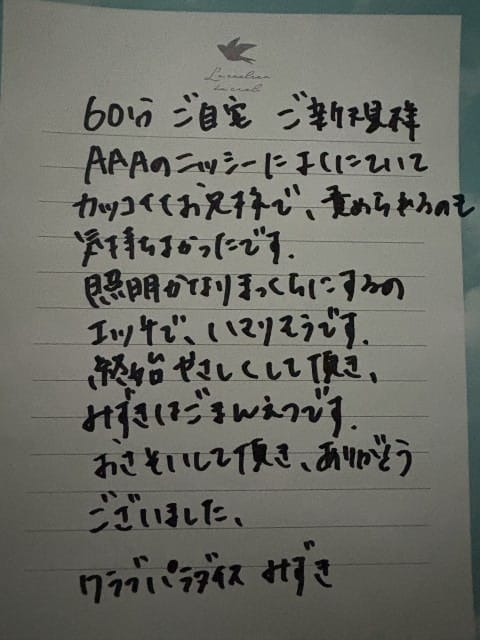 60分 ご自宅 ご新規様
AAAのニッシーによくにていて
カッコイイお兄様で、責められるのも
気持ちよかったです.
照明かなりまっくらにするの
エッチで、いいですね
終始やさしくして頂き、
みずきはごまんえつです.
おさそいして頂き、ありがとう
ございました、
クラブパラダイス みずき